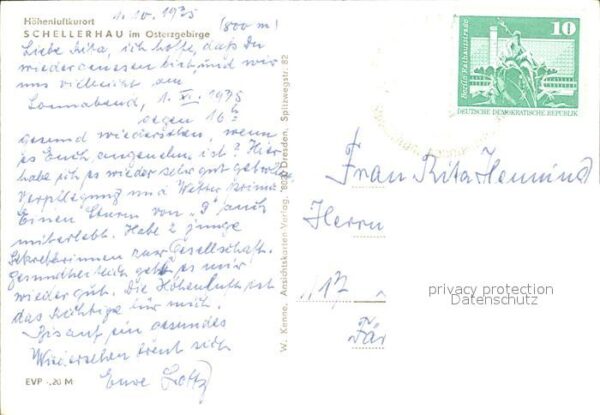 1.10.1975
Höhenluftkurort (800 m)
SCHELLERHAU im Osterzgebirge
Liebe Rita, ich hoffe, daß du
wieder genesen bist, und wir
uns vielleicht am
Sonnabend, 1.
gegen 16 h
gesund wiedersehen, wenn
es Euch angenehm ist? Hier
habe ich es wieder sehr gut getroffen
Verpflegung und Wetter prima
Einen Sturm von "9" auch
miterlebt. Habe 2 junge
Sekretärinnen zur Gesellschaft.
Gesundheitlich geht es mir
wieder gut. Die Höhenluft ist
das Richtige für mich.
Bis auf ein gesundes
Wiedersehen freut sich
Eure
EVP -.20 M
W. Kenne, Ansichtskarten-Verlag, Dresden, Spitzwegstr. 82
10
Berlin, Rathausstraße
DEUTSCHE DEMOKRATISCHE REPUBLIK
Frau Rita Henning
Herrn
117
privacy protection
Datenschutz